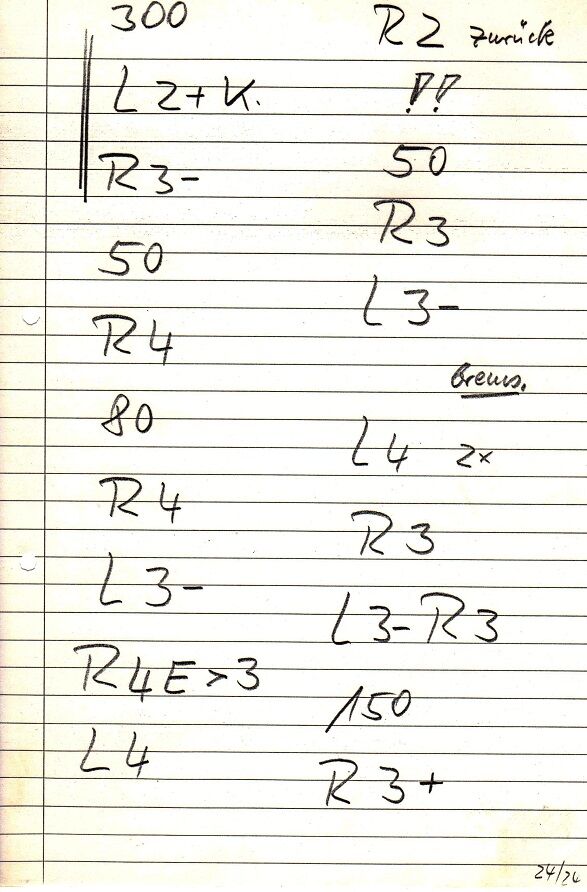 300
L 2+ K.
R 3-
50
R 4
80
R 4
L 3-
R 4 E > 3
L 4
R 2 zurück
!!
50
R 3
L 3-
Brems.
L 4 2x
R 3
L 3- R 3
150
R 3+
24/24